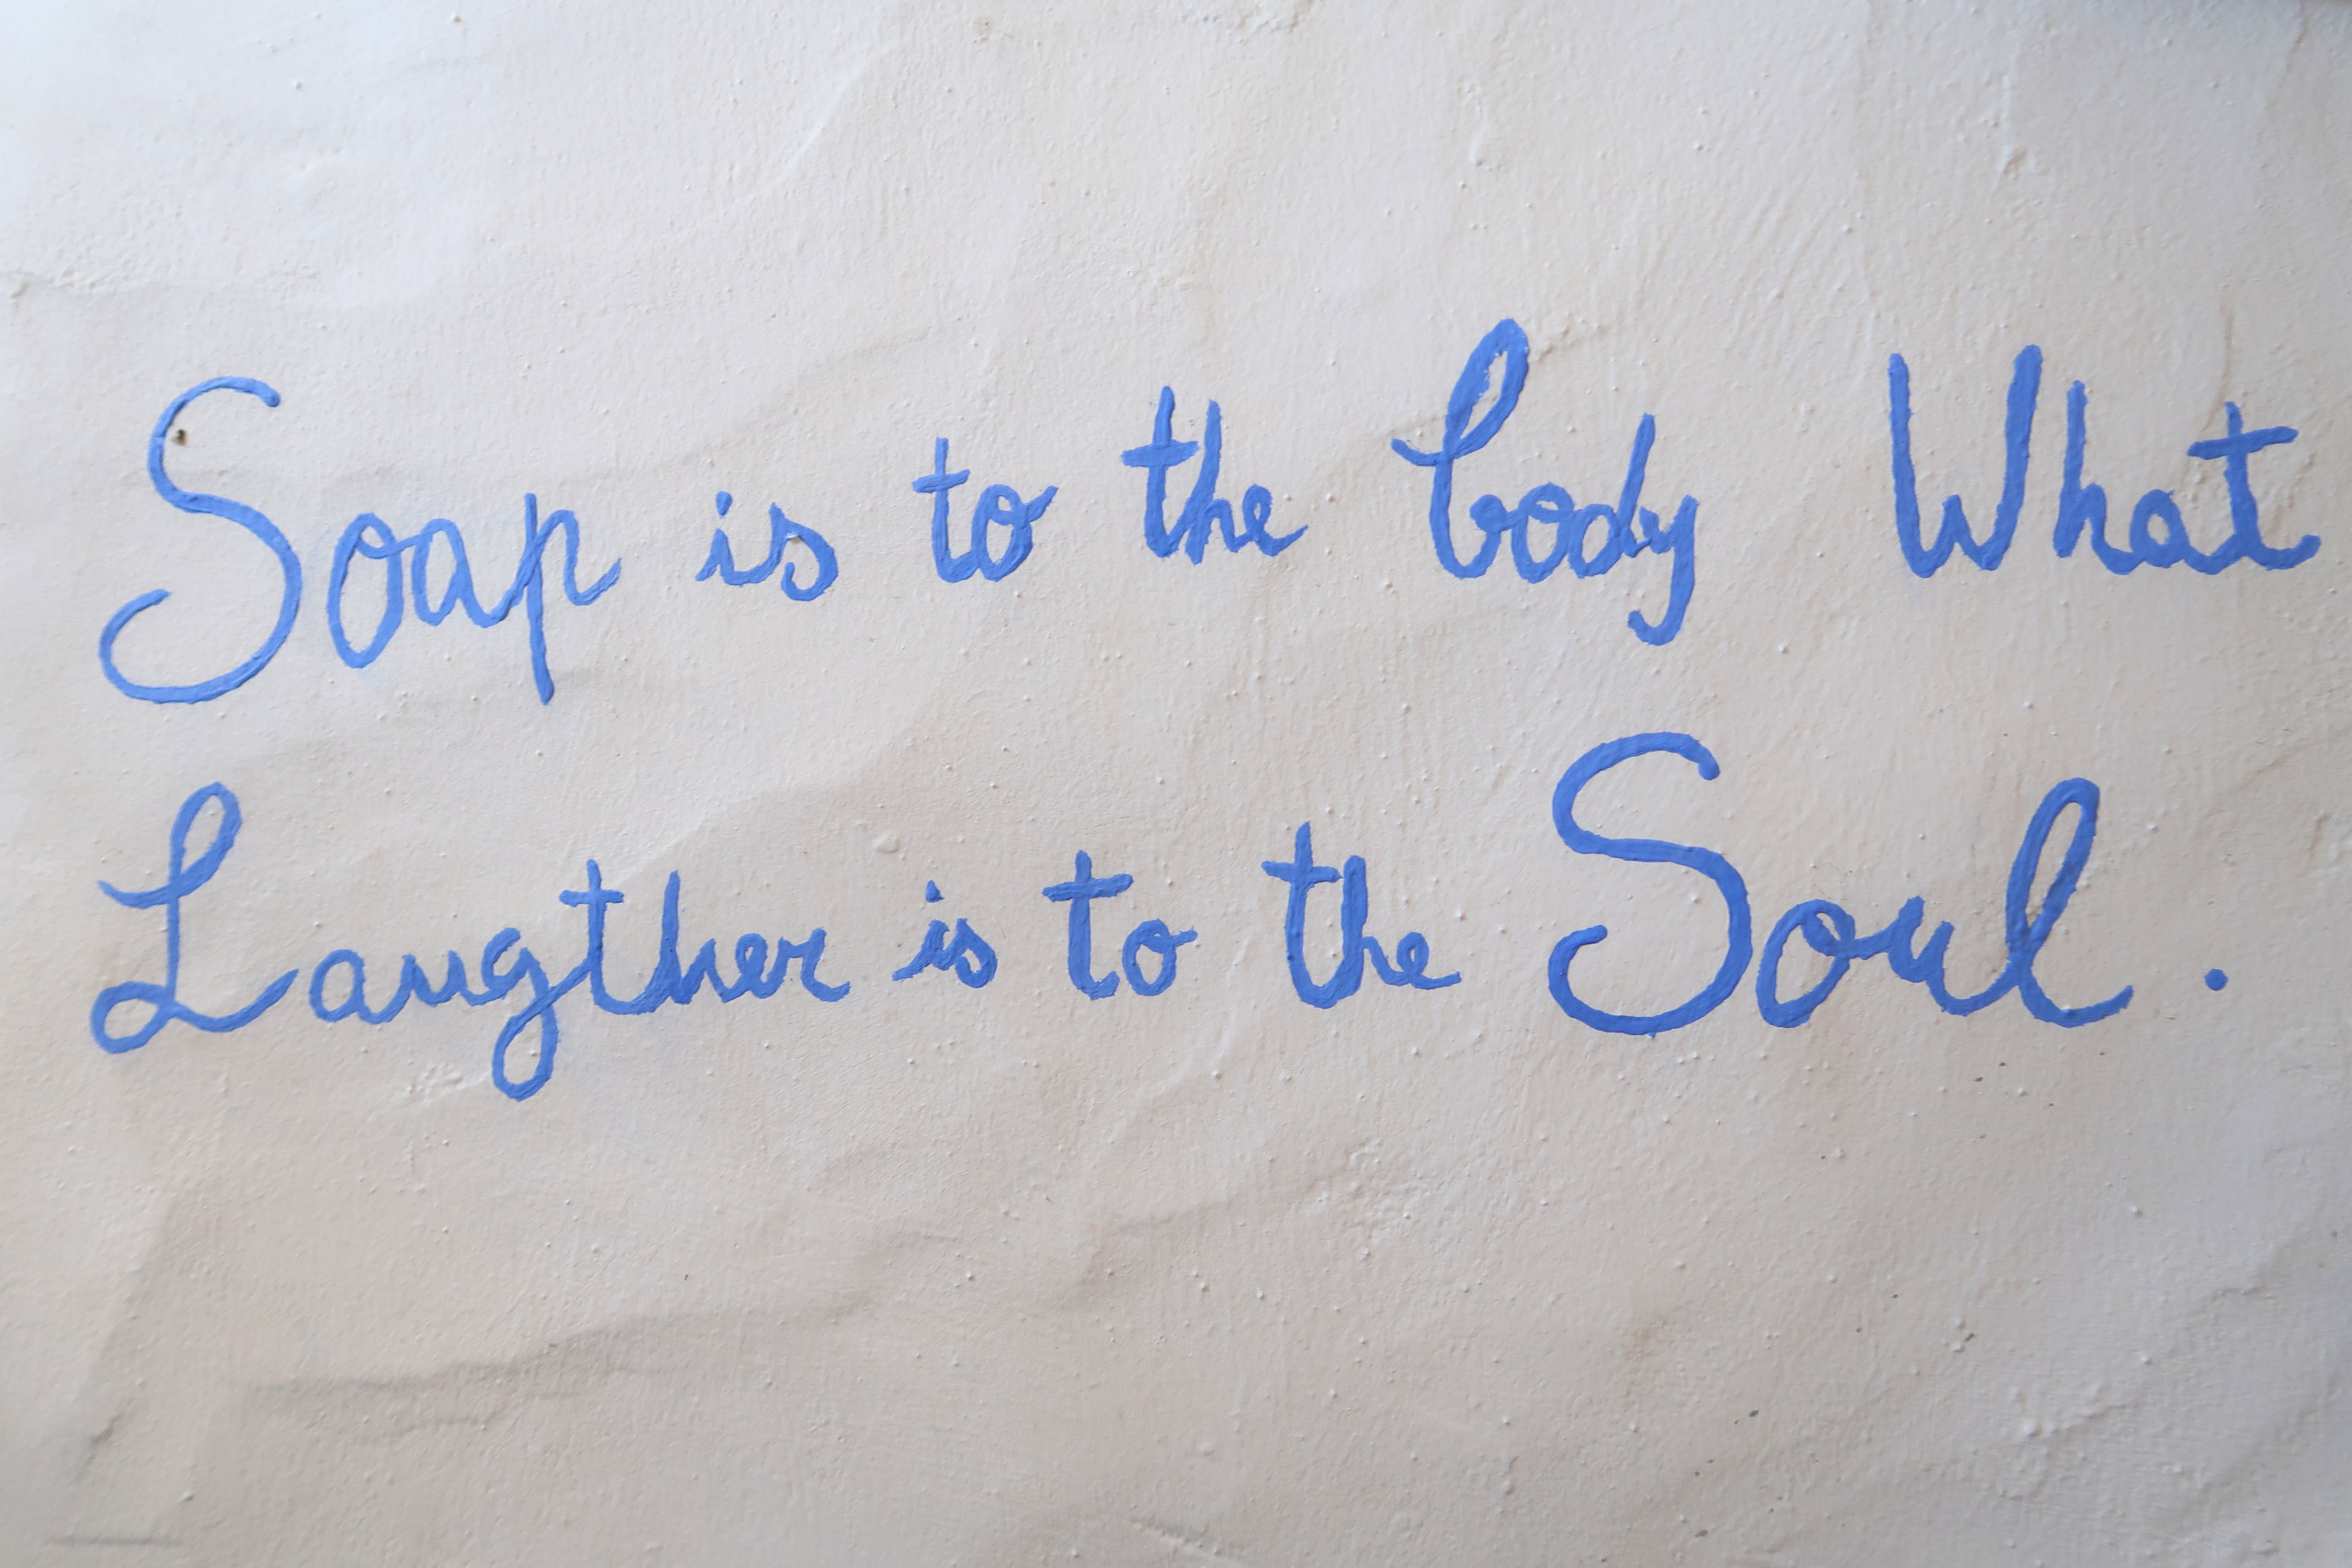 Soap is to the body What
Laugther is to the Soul.